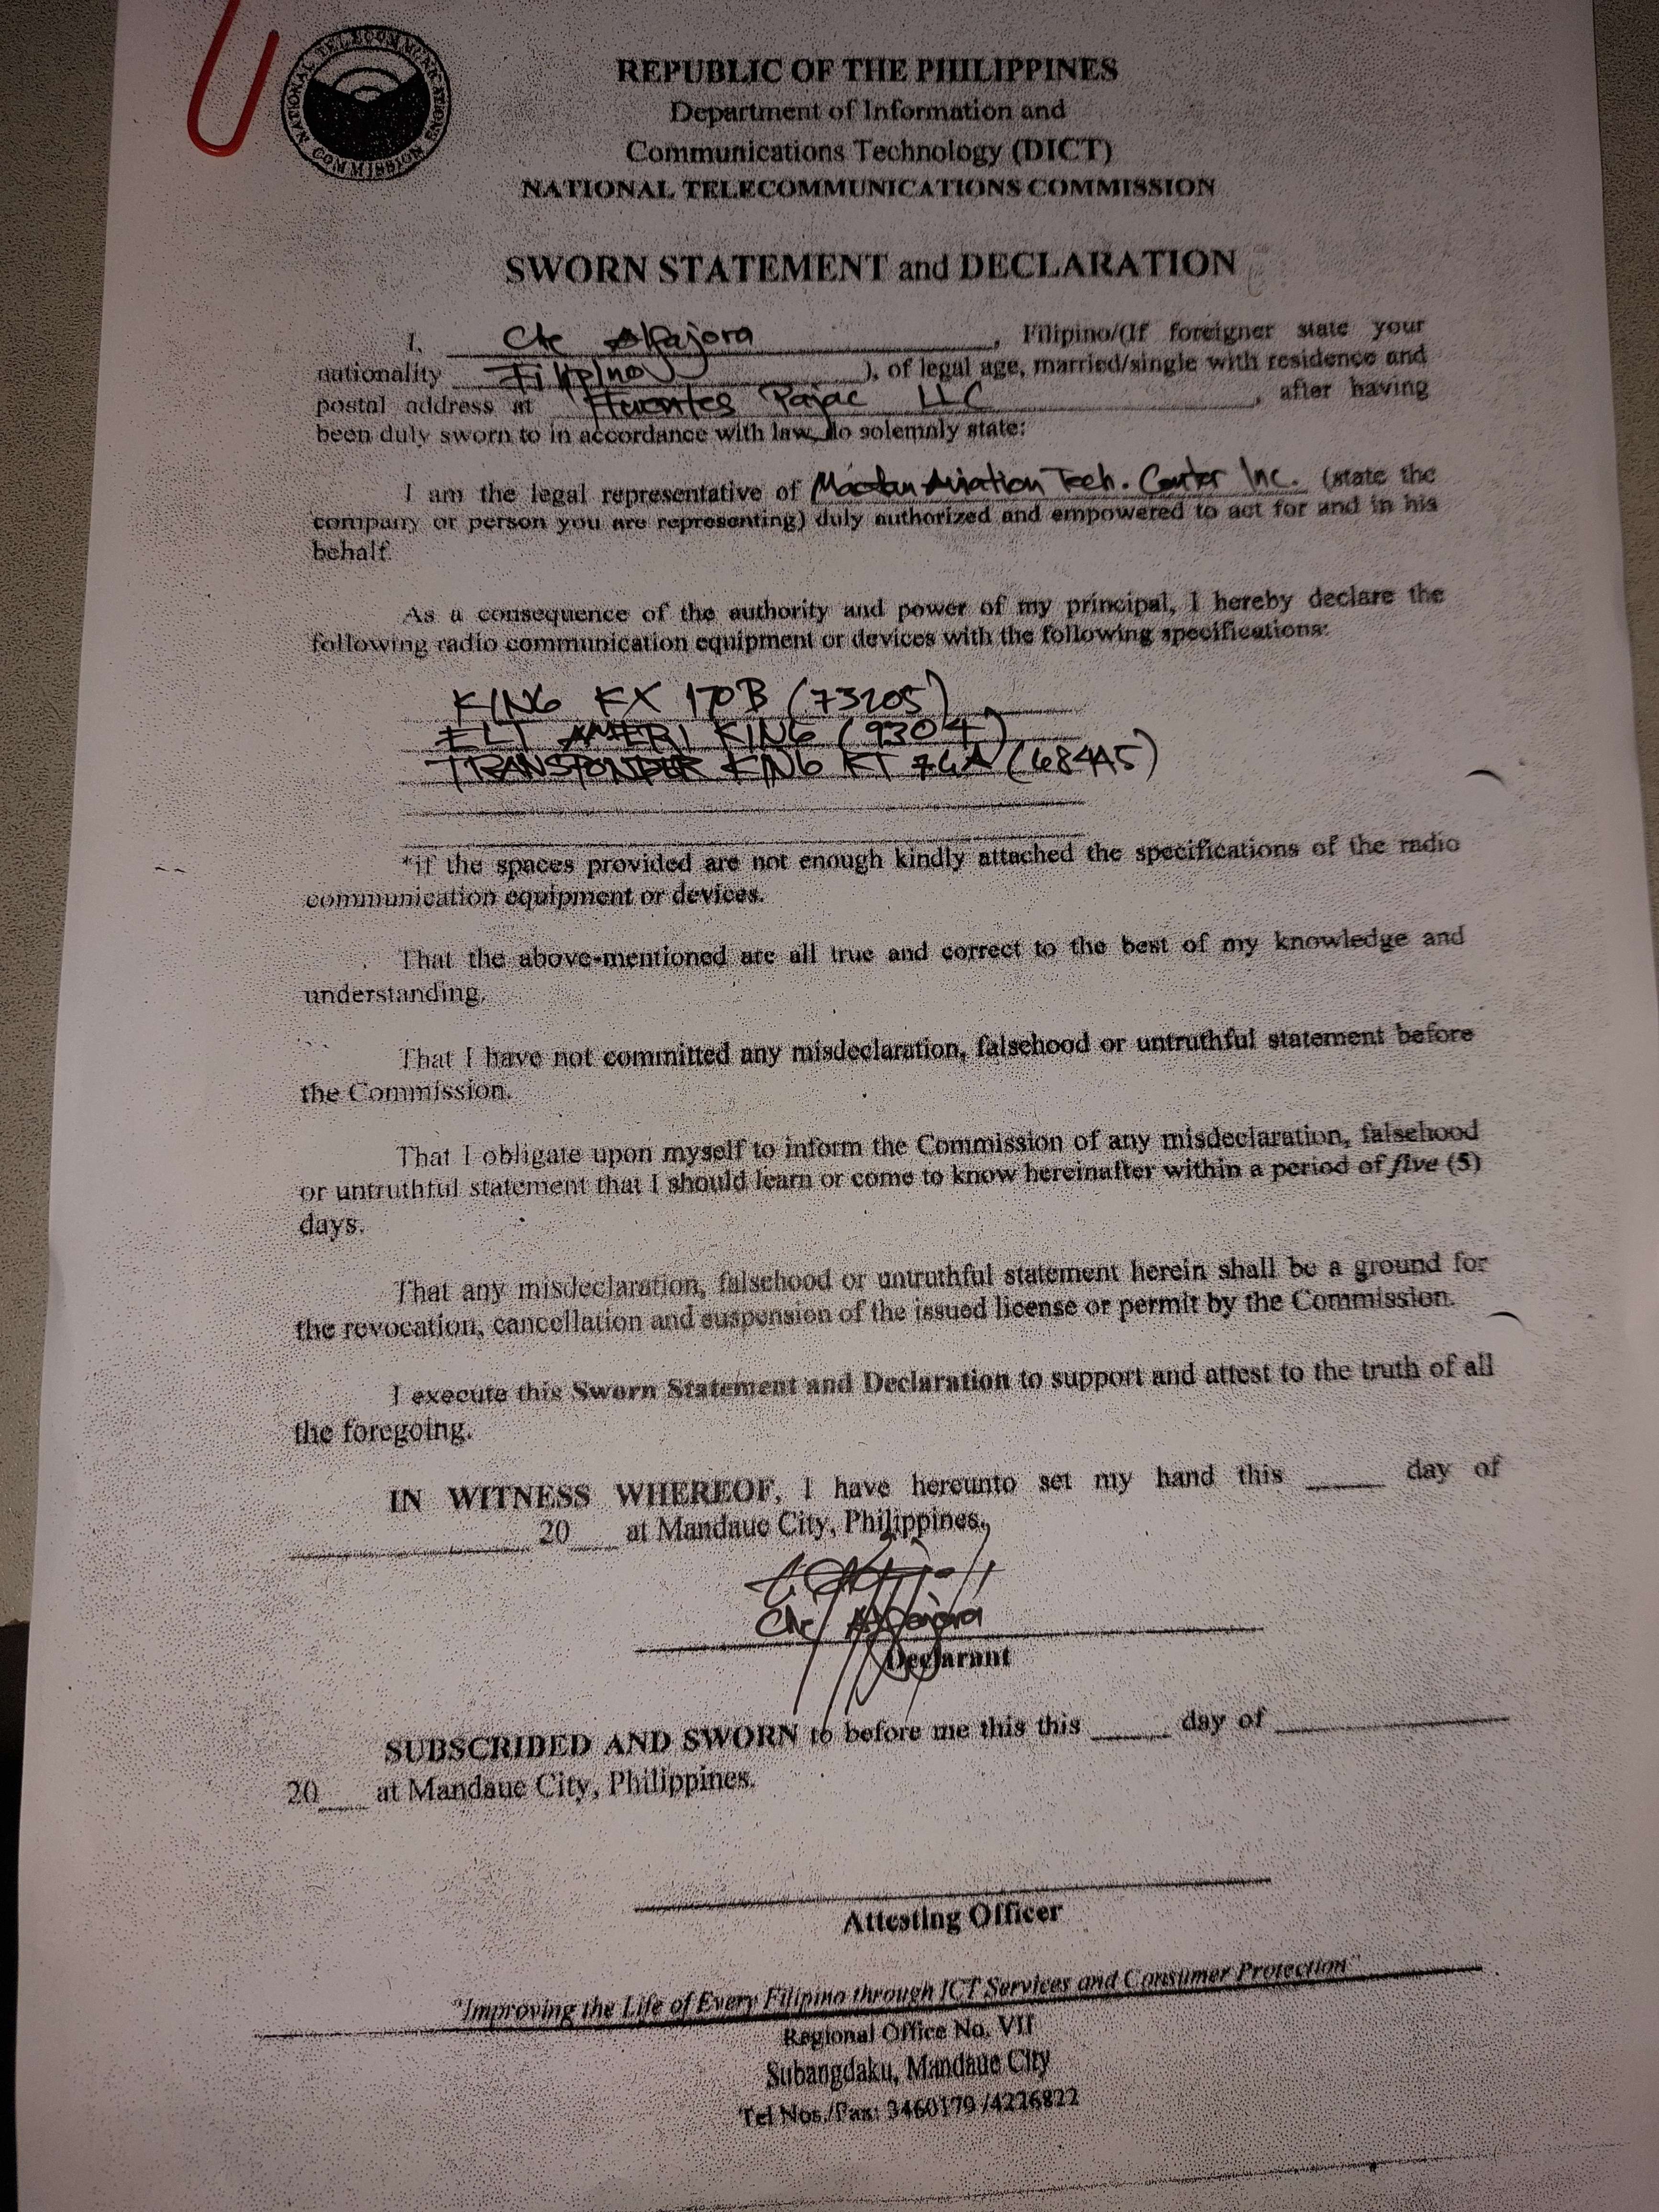 NATIONAL TELECOMMUNICATIONS COMMISSION
REPUBLIC OF THE PHILIPPINES
Department of Information and
Communications Technology (DICT)
NATIONAL TELECOMMUNICATIONS COMMISSION
SWORN STATEMENT and DECLARATION
I, Che Alfajora, Filipino/(If foreigner state your
nationality Filipino), of legal age, married/single with residence and
postal address at Fuentes Pajac LLC, after having
been duly sworn to in accordance with law, do solemnly state:
I am the legal representative of Mactan Aviation Tech. Center Inc. (state the
company or person you are representing) duly authorized and empowered to act for and in his
behalf.
As a consequence of the authority and power of my principal, I hereby declare the
following radio communication equipment or devices with the following specifications:
KING KX 170B (73205)
ELT AMERI KING (9304)
TRANSPONDER KING KT 76A (68445)
*if the spaces provided are not enough kindly attached the specifications of the radio
communication equipment or devices.
That the above-mentioned are all true and correct to the best of my knowledge and
understanding.
That I have not committed any misdeclaration, falsehood or untruthful statement before
the Commission.
That I obligate upon myself to inform the Commission of any misdeclaration, falsehood
or untruthful statement that I should learn or come to know hereinafter within a period of five (5)
days.
That any misdeclaration, falsehood or untruthful statement herein shall be a ground for
the revocation, cancellation and suspension of the issued license or permit by the Commission.
I execute this Sworn Statement and Declaration to support and attest to the truth of all
the foregoing.
IN WITNESS WHEREOF, I have hereunto set my hand this ____ day of
____ 20__ at Mandaue City, Philippines.
Che Alfajora
Declarant
SUBSCRIBED AND SWORN to before me this this ____ day of ____
20__ at Mandaue City, Philippines.
Attesting Officer
"Improving the Life of Every Filipino through ICT Services and Consumer Protection"
Regional Office No. VII
Subangdaku, Mandaue City
Tel Nos./Fax: 3460179 /4226822